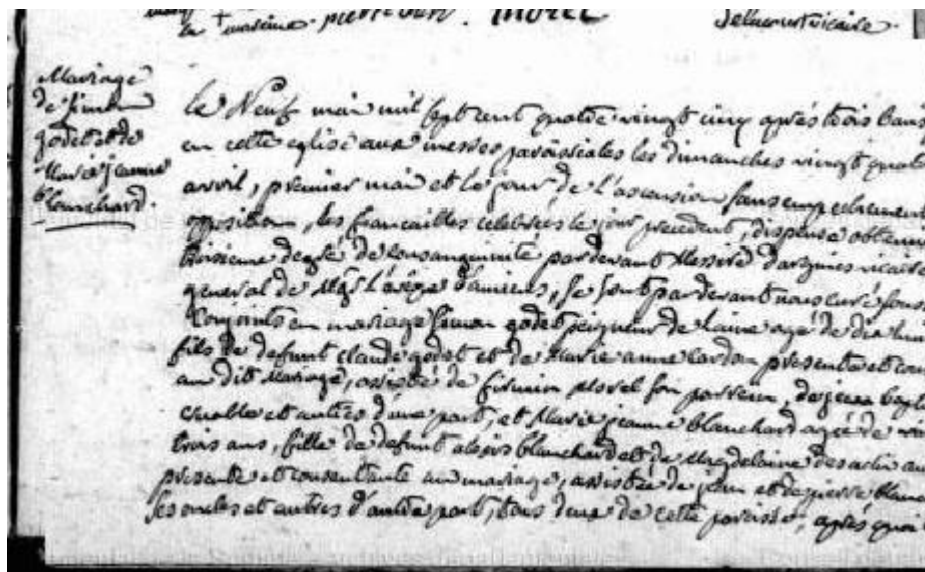 la marième pierre Morel Delacourt vicaire.
Mariage
de Simon
godet et de
Marie jeanne
blanchard.
Le Neuf mai mil sept cent quatre vingt cinq après trois bans
en cette eglise aux messes paroissiales les dimanches vingt quatre
avril, premier mai et le jour de l'ascension sans empechement
opposition, les fiancailles celebrées le jour precedent, dispense obtenue
troisieme degré de consanguinité pardevant Messire vicaire
general de Mgr L'évêque d'amiens, se sont pardevant nous curé sous
conjoints en mariage Simon godet peigneur de laine agé de dix huit
fils de defunt claude godet et de Marie anne cardon presente et con
au dit Mariage, assisté de firmin Morel son parrein, de jean
et autres d'une part, et Marie jeanne blanchard agée de vin
trois ans, fille de defunt alexis blanchard et de Magdelaine
presente et consentante au mariage, assistée de jean et de pierre blanc
ses oncles et autres d'autre part, tous deux de cette paroisse, après quoi